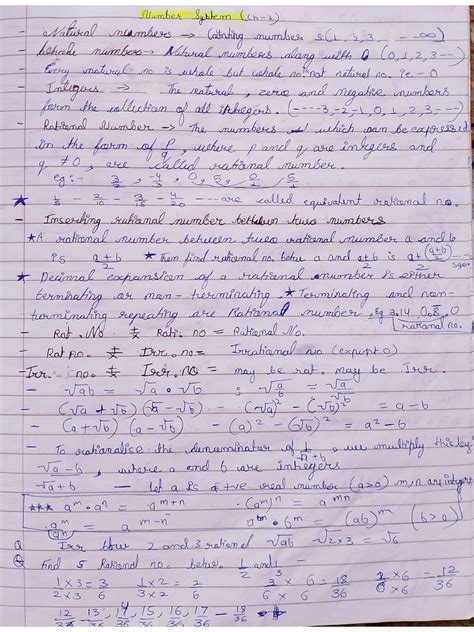 Number System (Ch-1)
- Natural numbers → Counting number s(1, 3, 3, --- ∞)
- Whole numbers → Natural numbers along with 0 (0, 1, 2, 3--)
Every natural no is whole but whole no not natural no. i.e. - 0
- Integers → The natural, zero and negative numbers
form the collection of all integers. (----3,-2,-1, 0, 1, 2, 3, --)
- Rational Number → The numbers which can be expressed
in the form of p/q, where p and q are integers and
q ≠ 0, are called rational number.
eg:- 3/2, -4/3, 0, 5, 0/2, 5/2
called equivalent rational no.
- Inserting rational number between two numbers
★ A rational number between two rational number a and b
is (a+b)/2 ★ Then find rational no. betw a and (a+b)/2 is
★ Decimal expansion of a rational number is either
terminating or non-terminating. ★ Terminating and non-
terminating repeating are rational number. Eg 3.14, 0.8, 0
rational no.
- Rat. No ± Rati. no = Rational No.
- Rat no. ± Irr. no = Irrational no (expect 0)
- Irr. no. ± Irr. no = may be rat. may be Irr.
- √ab = √a • √b ; √a/b = √a/√b
- (√a + √b) (√a - √b) - (√a)² - (√b)² = a-b
- (a + √b) (a - √b) - (a)² - (√b)² = a² - b
- To rationalise the denominator of 1/√a+b, we multiply this by
√a-b, where a and b are integers
√a+b - Let a is a +ve real number (a>0) m,n are integers
★★★ aᵐ • aⁿ = aᵐ⁺ⁿ - (aᵐ)ⁿ = aᵐⁿ
aᵐ/aⁿ = aᵐ⁻ⁿ aᵐ • bᵐ = (ab)ᵐ (b>0)
Q Irr betw 2 and 3 rational √ab √2×3 = √6
Q Find 5 Rational no. betw. 1/2 and 1/3 -
1×3/2×3 = 3/6 1×2/3×2 = 2/6 3/6 × 6/6 = 18/36 2×6/6×6 = 12/36
12/36, 13/36, 14, 15, 16, 17 - 18/36